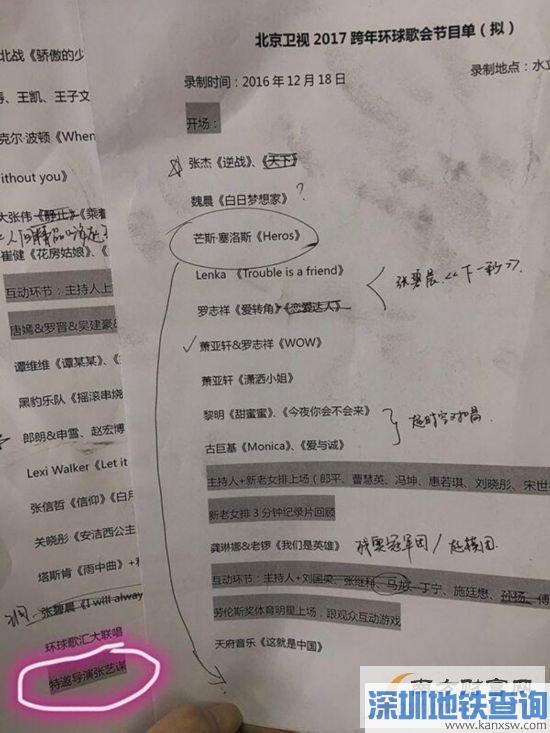 北战《骄傲的少
寿、王凯、王子文
克尔·波顿《When
ithout you》
大张伟《静止》《乘着
崔健《花房姑娘》、
互动环节：主持人上
唐嫣&罗晋&吴建豪&
谭维维《谭某某》、
黑豹乐队《摇滚串烧
郎朗&申雪、赵宏博
Lexi Walker《Let it
张信哲《信仰》《白月
关晓彤《安洁西公主
塔斯肯《雨中曲》+
张碧晨《I will alway
环球歌汇大联唱
特邀导演张艺谋
北京卫视 2017 跨年环球歌会节目单（拟）
录制时间：2016 年 12 月 18 日
录制地点：水立
开场：
张杰《逆战》、《天下》
魏晨《白日梦想家》?
芒斯·塞洛斯《Heros》
Lenka 《Trouble is a friend》
张碧晨《下一秒》
罗志祥《爱转角》《恋爱达人》
萧亚轩&罗志祥《WOW》
萧亚轩《潇洒小姐》
黎明《甜蜜蜜》、《今夜你会不会来》
超时空对唱
古巨基《Monica》、《爱与诚》
主持人+新老女排上场（郎平、曹慧英、冯坤、惠若琪、刘晓彤、宋世
新老女排 3 分钟纪录片回顾
龚琳娜&老锣《我们是英雄》 残奥冠军团/超模团
互动环节：主持人+刘国梁、张继科、马龙、丁宁、施廷懋、孙杨、傅
劳伦斯奖体育明星上场，跟观众互动游戏
天府音乐《这就是中国》
?
南方财富网
深圳地铁查询
www.kanxsw.com